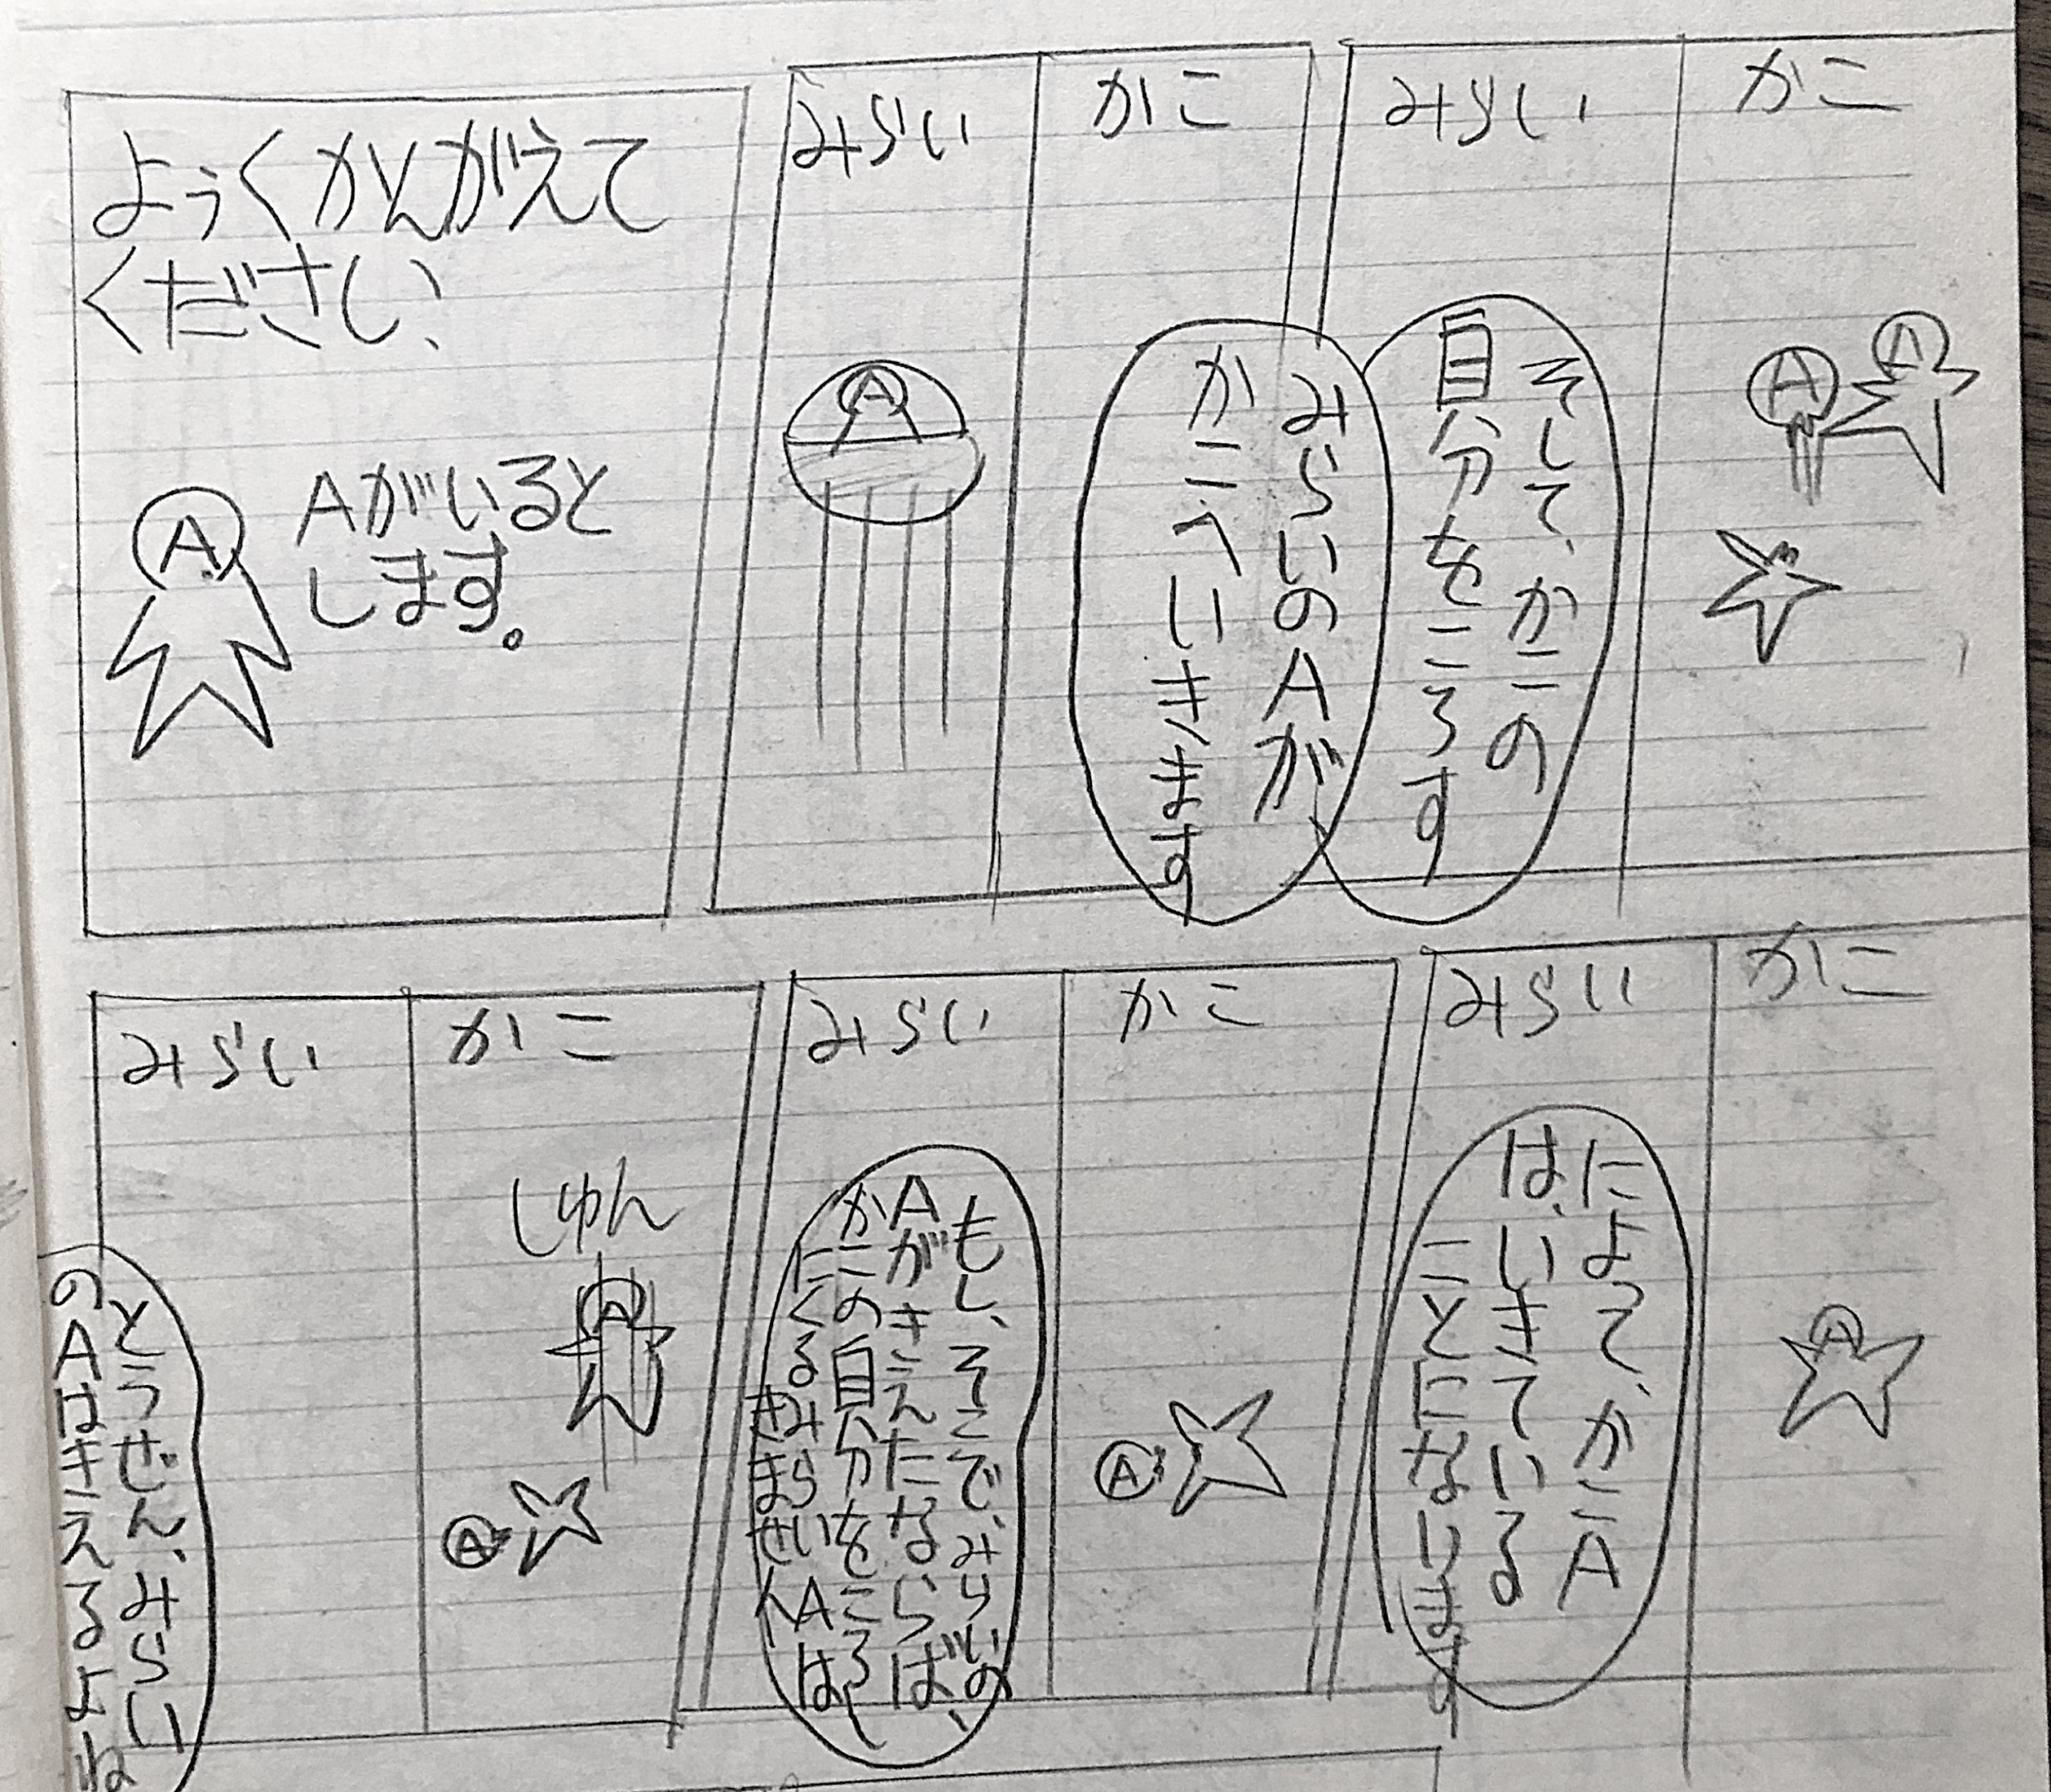 ようくかんがえて
ください、
Aがいると
します。
みらい
かこ
みらいのAが
かこへいきます
みらい
かこ
そして、かこの
自分をころす
みらい
かこ
しゅん
とうぜん、みらい
のAはきえるよね
みらい
かこ
もし、そこで、みらいの
Aがきえたならば、
かこの自分をころし
にくるみらいAは
きません
みらい
かこ
によて、かこA
は、いきている
ことになります